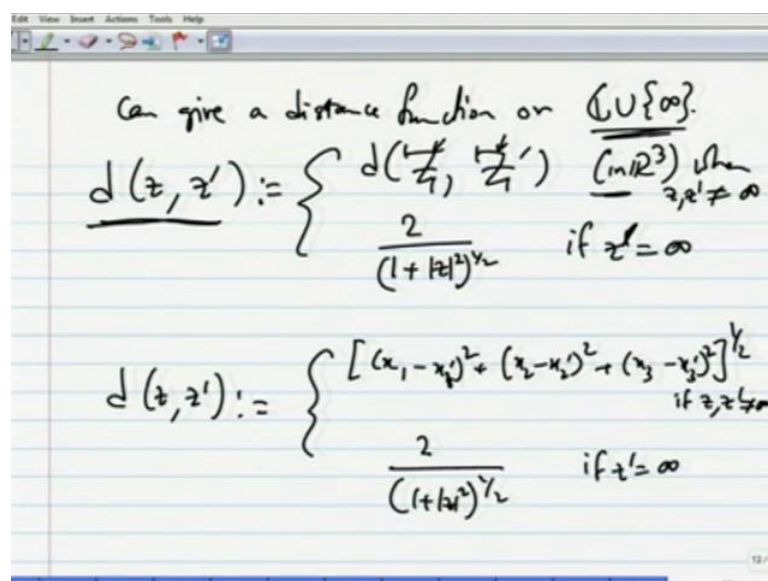 Edit View Insert Actions Tools Help
Can give a distance function on ℂ∪{∞}.
d(z, z') := { d(Z, Z') (in ℝ³) when z, z' ≠ ∞
2/(1+|z|²)^½ if z' = ∞
d(z, z') := { [(x₁-x₁')²+(x₂-x₂')²+(x₃-x₃')²]^½ if z, z' ≠ ∞
2/((1+|z|²)^½ if z' = ∞